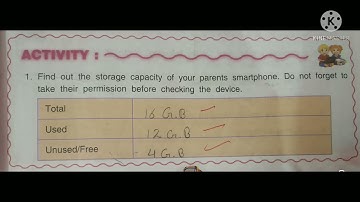 ACTIVITY :
1. Find out the storage capacity of your parents smartphone. Do not forget to
take their permission before checking the device.
Total 16 G.B
Used 12 G.B
Unused/Free 4 G.B